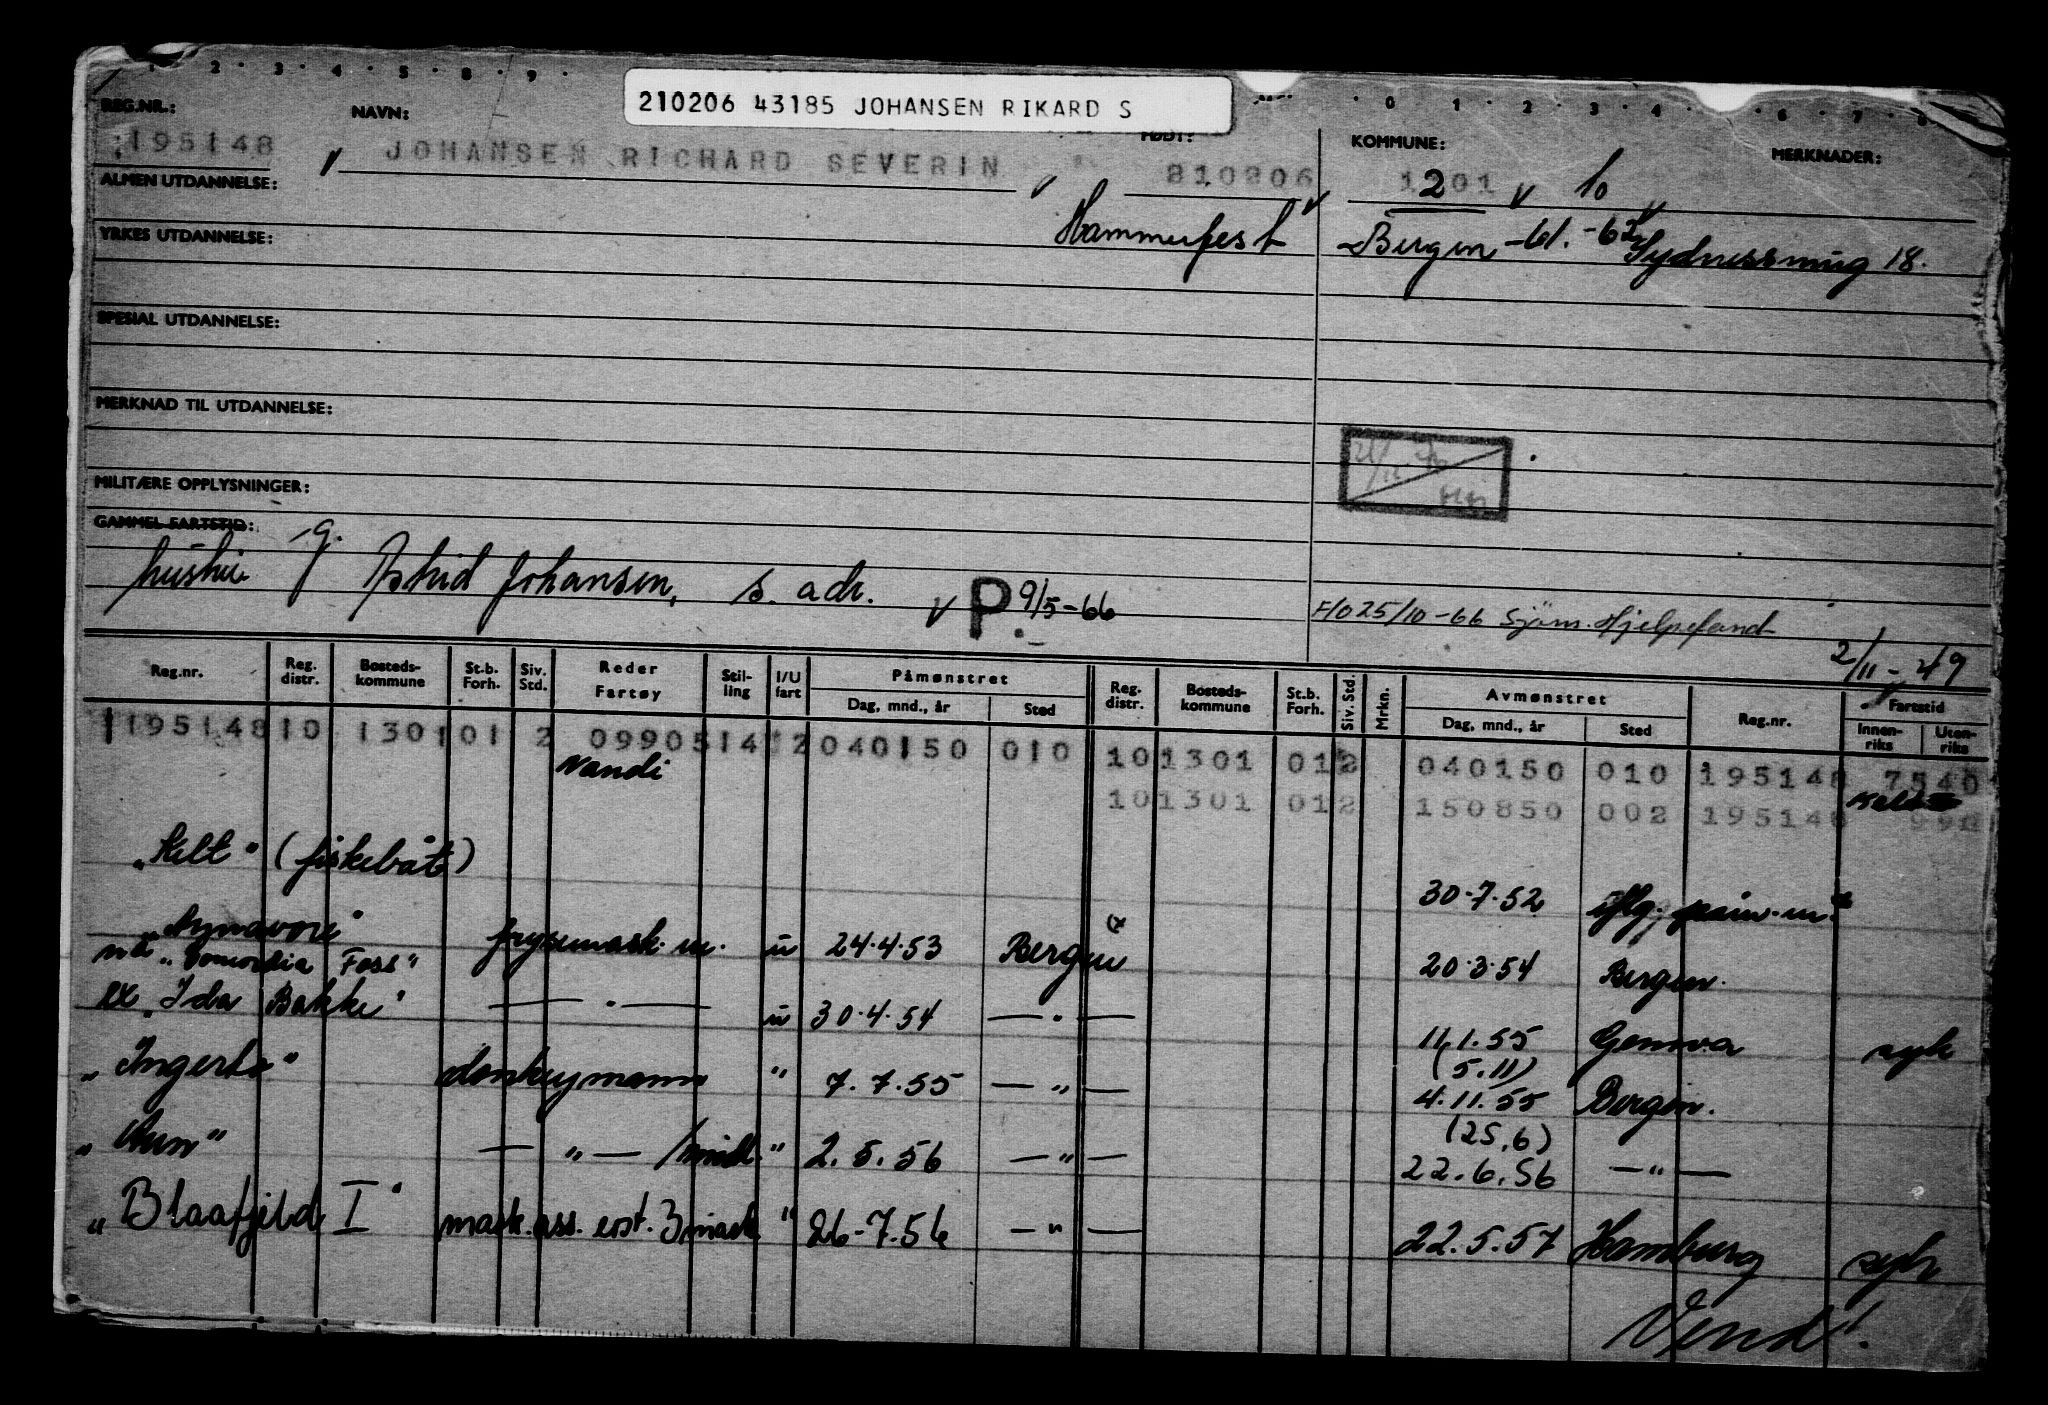 1 · 2 · 3 · 4 · 5 · 8 · 9 ·
210206 43185 JOHANSEN RIKARD S
REG.NR.: NAVN: FØDT: KOMMUNE: MERKNADER:
195148 JOHANSEN RICHARD SEVERIN 210206 1201 10
2
ALMEN UTDANNELSE:
Hammerfest Bergen -61. -62 Sydnessmug 18.
YRKES UTDANNELSE:
SPESIAL UTDANNELSE:
MERKNAD TIL UTDANNELSE:
MILITÆRE OPPLYSNINGER:
GAMMEL FARTSTID:
g.
hustru Astrid Johansen, s. adr. P. 9/5-66
25/10-66 Sjøm. Hjelpefond
2/11-49
Reg.nr. Reg. distr. Bosteds- kommune St.b. Forh. Siv. Std. Reder Fartøy Stil- ling I/U fart Påmønstret Dag, mnd., år Sted Reg. distr. Bosteds- kommune St.b. Forh. Siv. Std. Mrkn. Avmønstret Dag, mnd., år Sted Reg.nr. Fartstid Innen- riks Uten- riks
195148 10 1301 01 2 09905 14 2 040150 010 10 1301 01 2 040150 010 195148 7540
Nandi
10 1301 01 2 150850 002 195148
"Kelt" (fiskebåt)
30.7.52
frysemask.m. u 24.4.53 Bergen 20.3.54 Bergen.
nå "Concordia Foss"
ex "Ida Bakke" — " — u 30.4.54 — " — 11.1.55 Genova syk
(5.11)
"Ingerto" donkeymann " 7.7.55 — " — 4.11.55 Bergen.
(25.6)
"Aun" — " — " 2.5.56 — " — 22.6.56 — " —
"Blaafjeld I" mask.ass. erst. 3 mask " 26-7.56 — " — 22.5.57 Hamburg syk
Vend!